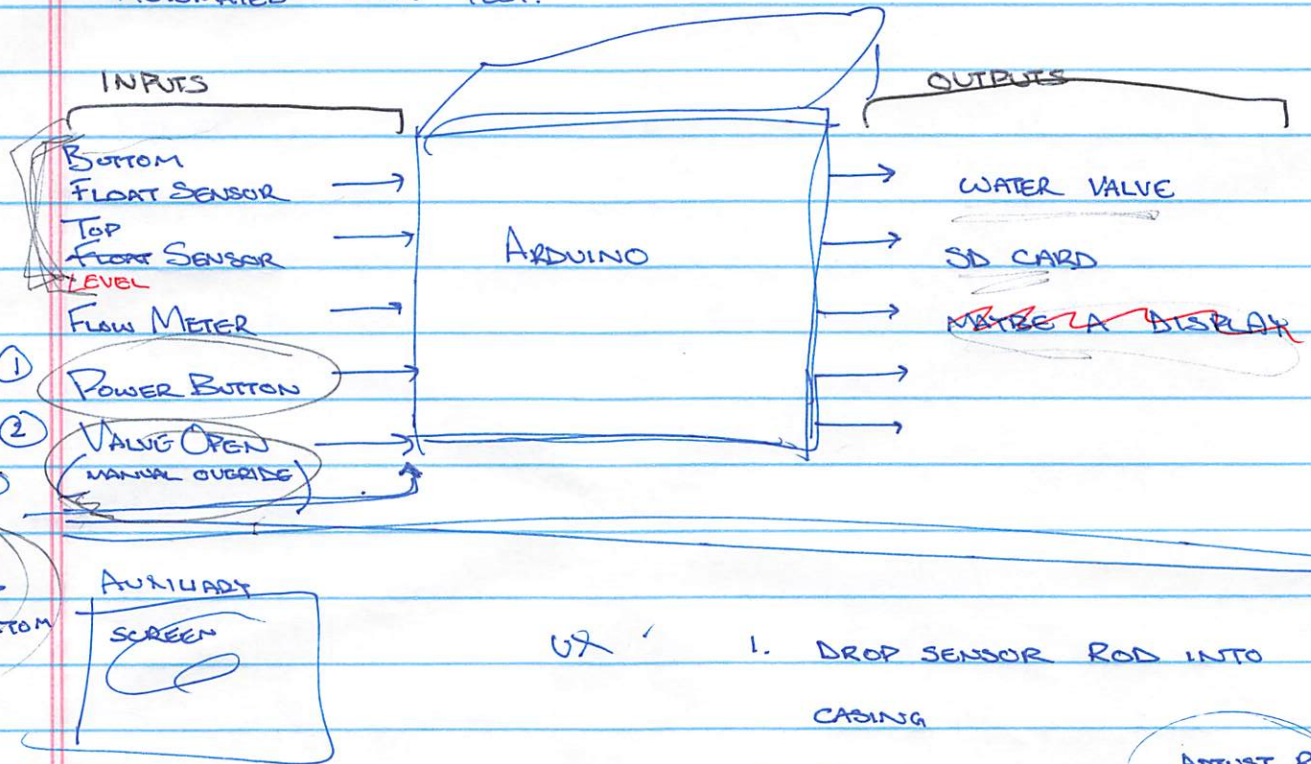 AUTOMATED TEST.
INPUTS
OUTPUTS
BOTTOM
FLOAT SENSOR
TOP
FLOAT SENSOR
LEVEL
FLOW METER
① POWER BUTTON
② VALVE OPEN
(MANUAL OVERIDE)
ARDUINO
WATER VALVE
SD CARD
MAYBE A DISPLAY
AUXILIARY
SCREEN
UX
1. DROP SENSOR ROD INTO
CASING